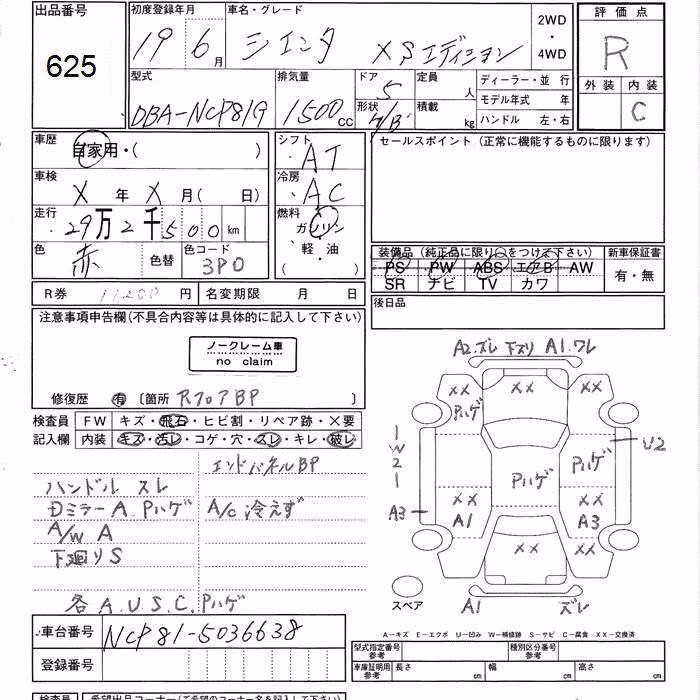 出品番号 初度登録年月 車名・グレード 2WD・4WD 評価点
625 19 6月 シエンタ XSエディション R
型式 排気量 ドア 定員 人 ディーラー・並行 外装 内装
DBA-NCP81G 1500cc 5 形状 積載 kg モデル年式 年 C
ハンドル 左・右
車歴 自家用・( ) シフト AT セールスポイント (正常に機能するものに限ります)
車検 X年X月( 日) 冷房 AC
走行 29万2千500km 燃料 ガソリン
色 赤 色替 色コード 3P0 軽・油 ( )
装備品 (純正品に限り○をつけて下さい) 新車保証書
PS PW ABS エアB AW 有・無
SR ナビ TV カワ
R券 11200円 名変期限 月 日 後日品
注意事項申告欄(不具合内容等は具体的に記入して下さい)
ノークレーム車
no claim
修復歴 有 〔箇所 RフロアBP
検査員 FW キズ・飛石・ヒビ割・リペア跡・×要
記入欄 内装 キズ・汚レ・コゲ・穴・スレ・キレ・破レ
エンドパネルBP
ハンドル スレ
Dミラー A. Pハゲ A/C 冷えず
A/W A
下廻り S
各 A.U.S.C.Pハゲ
A2.ズレ 下スリ A1.ワレ
XX XX XX
Pハゲ
1W21 U2
Pハゲ Pハゲ
XX XX
A3 A1 A3
XX
スペア A1 ズレ
A−キズ E−エクボ U−凹み W−補修跡 S−サビ C−腐食 XX−交換済
車台番号 NCP81-5036638
型式指定番号 参考 種別区分番号 参考
登録番号
車庫証明用 参考 長さ cm 幅 cm 高さ cm
検査員 希望出品コーナー(ご希望のコーナー名を記入して下さい)